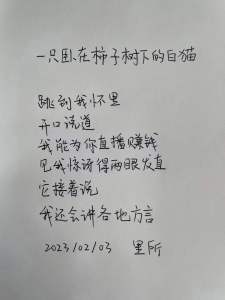 一只卧在柿子树下的白猫
跳到我怀里
开口说道
我能为你直播赚钱
见我惊讶得两眼发直
它接着说
我还会讲各地方言
2023/02/03 里所